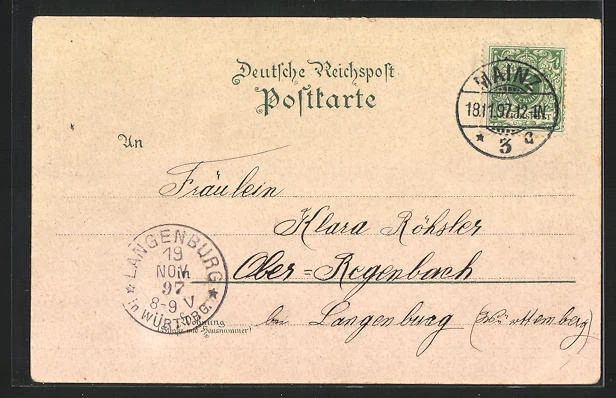 Deutsche Reichspost
Postkarte
MAINZ
18.11.97.12-1N.
* 3 a
An
Fräulein
Klara Röhsler
Ober=Regenbach
bei Langenburg (Württemberg)
* LANGENBURG *
19
NOV
97
8-9 V
in WÜRTTBG.
Wohnung
(Straße und Hausnummer)